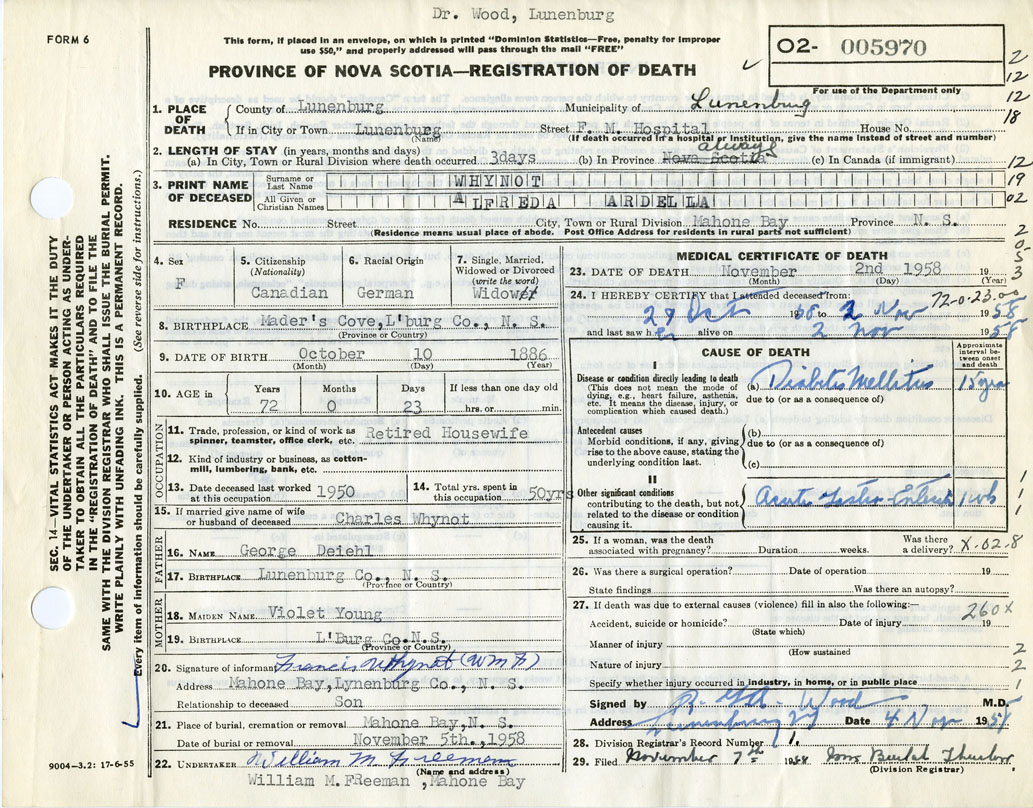 Dr. Wood, Lunenburg
FORM 6
This form, if placed in an envelope, on which is printed "Dominion Statistics—Free, penalty for improper
use $50," and properly addressed will pass through the mail "FREE"
PROVINCE OF NOVA SCOTIA—REGISTRATION OF DEATH
O2- 005970
For use of the Department only
2
12
12
18
1. PLACE OF DEATH
County of Lunenburg Municipality of Lunenburg
If in City or Town Lunenburg Street F. M. Hospital House No.
(Name) (If death occurred in a hospital or Institution, give the name instead of street and number)
2. LENGTH OF STAY (in years, months and days) always
(a) In City, Town or Rural Division where death occurred 3days (b) In Province Nova Scotia (c) In Canada (if immigrant)
12
19
02
3. PRINT NAME OF DECEASED
Surname or Last Name WHYNOT
All Given or Christian Names ALFREDA ARDELLA
RESIDENCE No. Street City, Town or Rural Division Mahone Bay Province N. S.
(Residence means usual place of abode. Post Office Address for residents in rural parts not sufficient)
2
0
5
3
SEC. 14—VITAL STATISTICS ACT MAKES IT THE DUTY
OF THE UNDERTAKER OR PERSON ACTING AS UNDER-
TAKER TO OBTAIN ALL THE PARTICULARS REQUIRED
IN THE "REGISTRATION OF DEATH" AND TO FILE THE
SAME WITH THE DIVISION REGISTRAR WHO SHALL ISSUE THE BURIAL PERMIT.
WRITE PLAINLY WITH UNFADING INK. THIS IS A PERMANENT RECORD.
Every item of information should be carefully supplied. (See reverse side for instructions.)
4. Sex
F
5. Citizenship
(Nationality)
Canadian
6. Racial Origin
German
7. Single, Married,
Widowed or Divorced
(write the word)
Widow
8. BIRTHPLACE Mader's Cove, L'burg Co., N. S.
(Province or Country)
9. DATE OF BIRTH October 10 1886
(Month) (Day) (Year)
10. AGE in
Years Months Days If less than one day old
72 0 23 hrs. or min.
OCCUPATION
11. Trade, profession, or kind of work as
spinner, teamster, office clerk, etc. Retired Housewife
12. Kind of industry or business, as cotton-
mill, lumbering, bank, etc.
13. Date deceased last worked
at this occupation 1950
14. Total yrs. spent in
this occupation 50yrs
15. If married give name of wife
or husband of deceased Charles Whynot
FATHER
16. NAME George Deiehl
17. BIRTHPLACE Lunenburg Co., N. S.
(Province or Country)
MOTHER
18. MAIDEN NAME Violet Young
19. BIRTHPLACE L'Burg Co.N.S.
(Province or Country)
20. Signature of informant Francis Whynot (WMF)
Address Mahone Bay, Lynenburg Co., N. S.
Relationship to deceased Son
21. Place of burial, cremation or removal Mahone Bay, N. S.
Date of burial or removal November 5th., 1958
22. UNDERTAKER William M. Freeman
(Name and address)
William M. FReeman , Mahone Bay
9004—3.2: 17-6-55
MEDICAL CERTIFICATE OF DEATH
23. DATE OF DEATH November 2nd 1958 19
(Month) (Day) (Year)
24. I HEREBY CERTIFY that I attended deceased from: 72-0-23.00
29 Oct 1958 to 2 Nov 1958
and last saw her alive on 2 Nov 1958
CAUSE OF DEATH
Approximate
interval be-
tween onset
and death
I
Disease or condition directly leading to death
(This does not mean the mode of
dying, e.g., heart failure, asthenia,
etc. It means the disease, injury, or
complication which caused death.)
(a) Diabetes Mellitus 15 yrs
due to (or as a consequence of)
Antecedent causes
Morbid conditions, if any, giving
rise to the above cause, stating the
underlying condition last.
(b)
due to (or as a consequence of)
(c)
II
Other significant conditions
contributing to the death, but not
related to the disease or condition
causing it.
Acute Gastro Enteritis 1 wk
1
1
1
25. If a woman, was the death
associated with pregnancy? Duration weeks. Was there
a delivery? X-02-8
26. Was there a surgical operation? Date of operation 19
State findings Was there an autopsy?
27. If death was due to external causes (violence) fill in also the following:— 260X
Accident, suicide or homicide? Date of injury 19
(State which)
Manner of injury
(How sustained
Nature of injury
Specify whether injury occurred in industry, in home, or in public place
2
2
1
Signed by Wood M.D.
Address Lunenburg NS Date 4 Nov 1958
28. Division Registrar's Record Number 1.
29. Filed November 7th 1958
(Division Registrar)